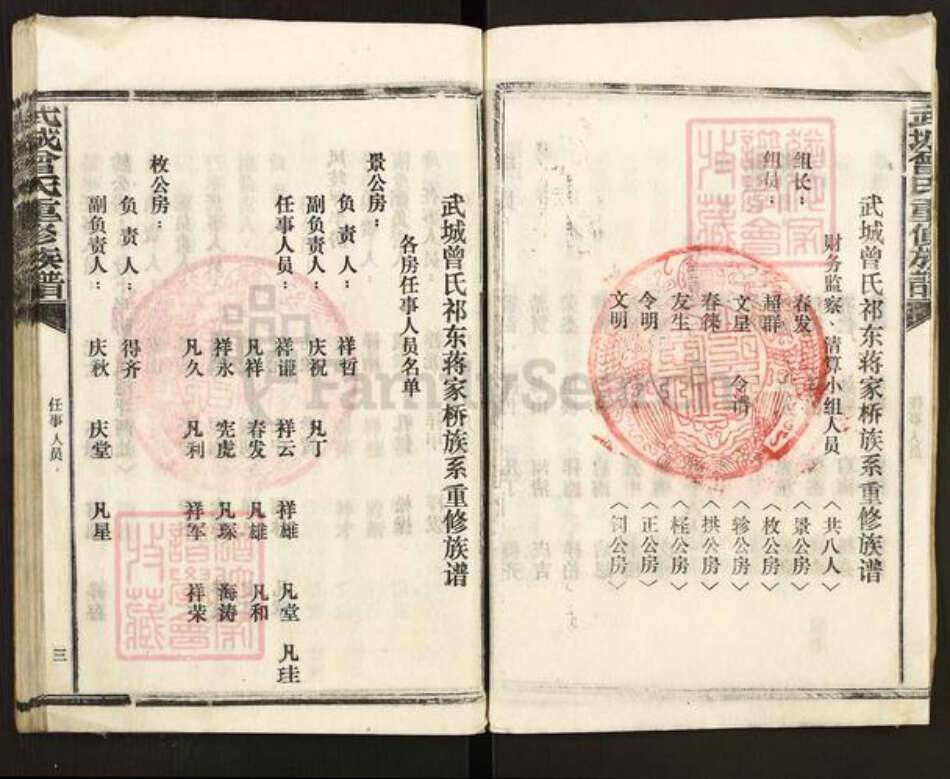 武城曾氏重修族譜
武城曾氏祁东蒋家桥族系重修族谱
财务监察、清算小组人员 〈共八人〉
组长： 春发 〈景公房〉
组员： 超群 〈枚公房〉
文星 令谱 〈轸公房〉
春徕 〈拱公房〉
友生
令明 〈正公房〉
文明
武城曾氏祁东蒋家桥族系重修族谱
各房任事人员名单
景公房：
负责人： 祥哲
副负责人： 庆祝 凡丁
任事人员： 祥谦 祥云 祥雄 凡堂 凡珪
凡祥 春发 凡雄 凡和
祥永 宪虎 凡琢 海涛
凡久 凡利 祥军 祥荣
枚公房：
负责人： 得齐
副负责人： 庆秋 庆堂 凡星
武城曾氏重修族譜
任事人员
三
FamilySearch